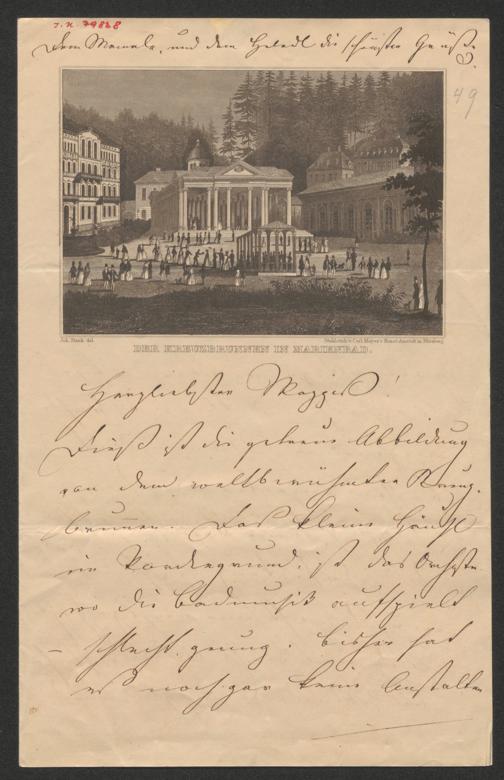 I.N. 79828
Dem Mamale, und dem Heledl die schönsten Grüße
49
Joh. Stank del.
Stahlstich v. Carl Mayer's Kunst-Anstalt in Nürnberg
DER KREUZBRUNNEN IN MARIENBAD.
Herzliebster
Dieß ist die getreue Abbildung
von dem weltberühmten Kreuz-
brunnen. Das kleine Häusl
im Vordergrund, ist das Orchester
wo die Badmusik aufspielt
– schlecht genug. Bisher hat
es noch gar keine Anstalten